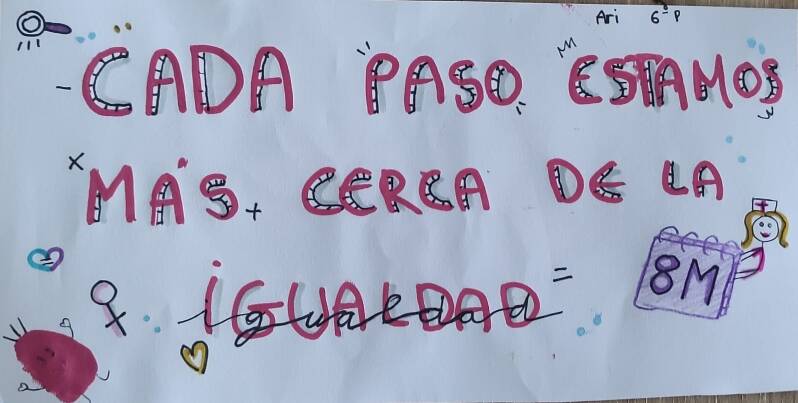 Ari 6º P
CADA PASO ESTAMOS
MÁS CERCA DE LA
iGUALDAD =
igualdad
8M